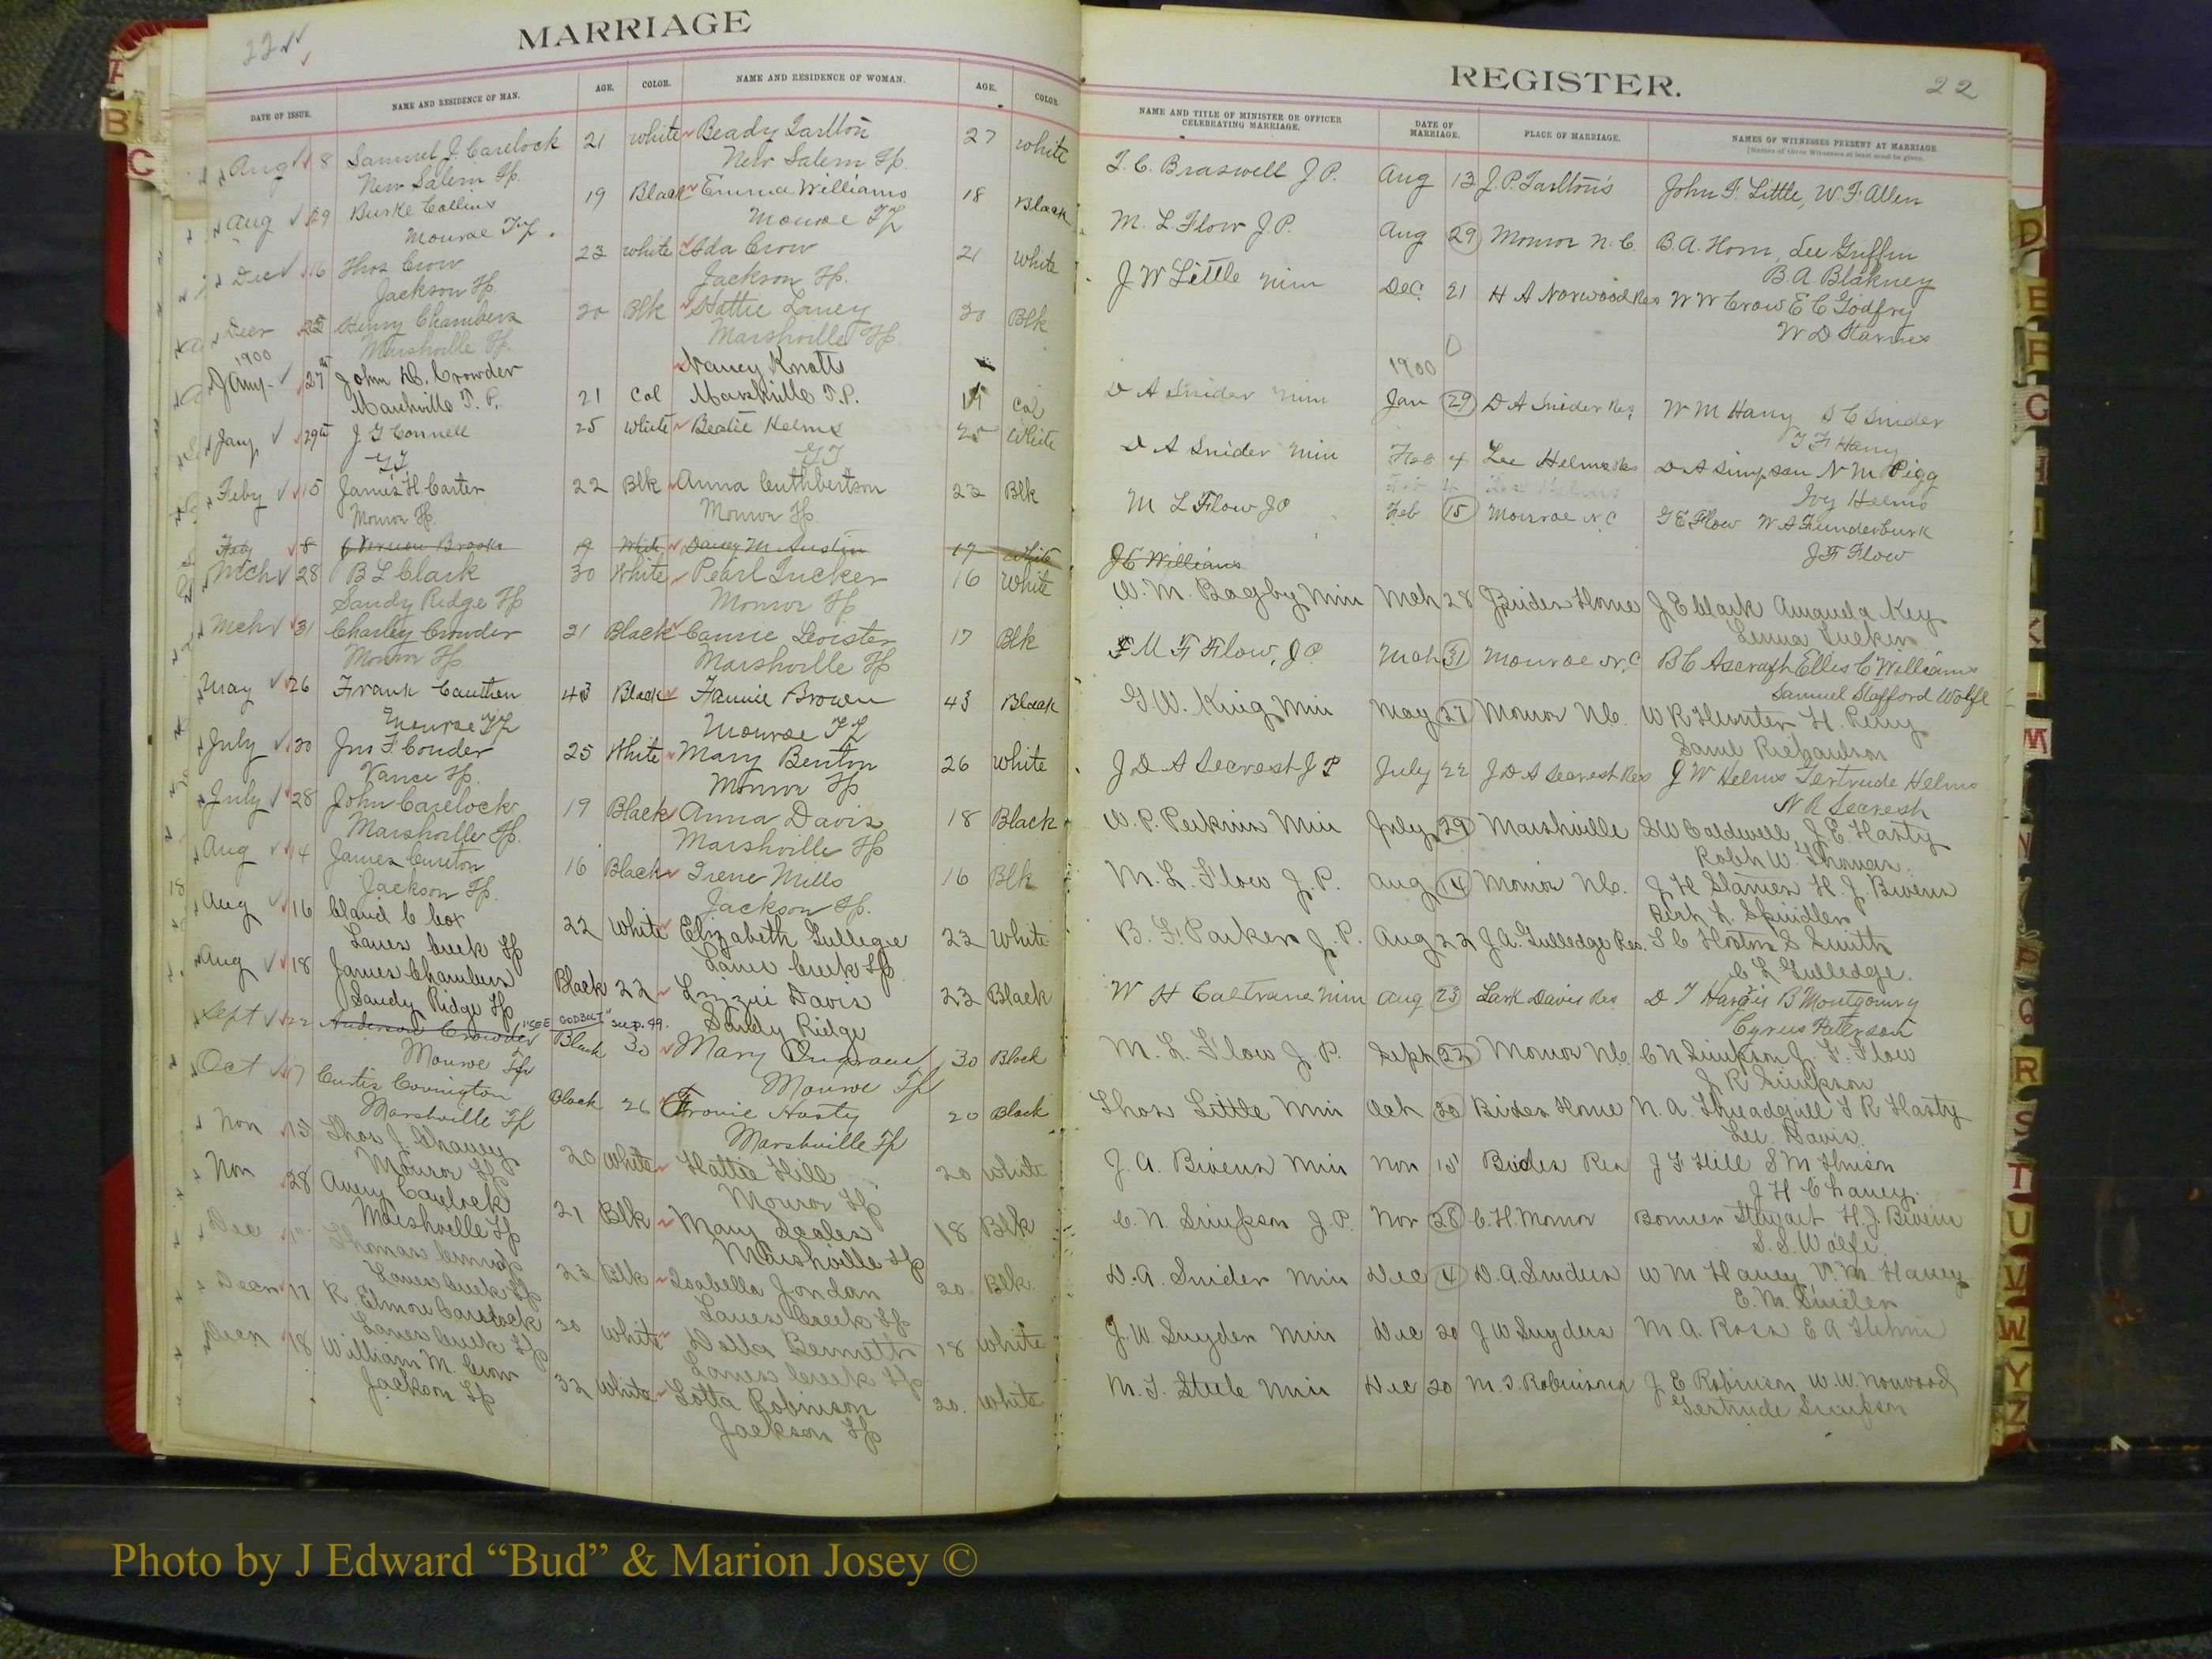 22
MARRIAGE
DATE OF ISSUE.
NAME AND RESIDENCE OF MAN.
AGE.
COLOR.
NAME AND RESIDENCE OF WOMAN.
AGE.
COLOR
Aug 8 Samuel J. Carelock 21 White Beady Tarlton 27 White
New Salem Tp. New Salem Tp.
Aug 29 Burke Collins 19 Black Emma Williams 18 Black
Monroe Tp. Monroe Tp
Dec 16 Thos Crow 23 White Ada Crow 21 White
Jackson Tp. Jackson Tp.
Decr 22 Henry Chambers 20 Blk Hattie Laney 20 Blk
Marshville Tp. Marshville Tp.
1900
Jany 27th John D. Crowder 21 Col Nancy Knotts Col
Marshville T.P. Marshville T.P.
Jany 29th J G Connell 25 White Beatie Helms 25 White
Feby 15 James H Carter 22 Blk Anna Cuthbertson 22 Blk
Monroe Tp. Monroe Tp.
Feby 8 J Vernon Brooks 19 White Daisy M Austin 17 White
Mch 28 B L Clark 30 White Pearl Tucker 16 White
Sandy Ridge Tp Monroe Tp
Mch 31 Charley Crowder 21 Black Cannie Doister 17 Blk
Monroe Tp. Marshville Tp
May 26 Frank Cauthen 43 Black Fannie Brown 43 Black
Monroe Tp Monroe Tp
July 20 Jno F Conder 25 White Mary Benton 26 White
Vance Tp. Monroe Tp
July 28 John Carelock 19 Black Anna Davis 18 Black
Marshville Tp. Marshville Tp
Aug 14 James Cureton 16 Black Irene Mills 16 Blk
Jackson Tp. Jackson Tp.
Aug 16 Claud C Cox 22 White Elizabeth Gulledge 23 White
Lanes Creek Tp Lanes Creek Tp
Aug 18 James Chambers Black 22 Lizzie Davis 23 Black
Sandy Ridge Tp Sandy Ridge
Sept 22 Anderson Crowder "SEE GODBOLT" sup. 49. Black 30 Mary 30 Black
Monroe Tp Monroe Tp
Oct 17 Curtis Covington Black 26 Fronie Hasty 20 Black
Marshville Tp Marshville Tp
Nov 15 Thos J. Chaney 20 White Hattie Hill 20 White
Monroe Tp Monroe Tp
Nov 28 Avery Carelock 21 Blk Mary Scales 18 Blk
Marshville Tp Marshville Tp
Dec Thomas 23 Blk Isabella Jordan 20 Blk.
Lanes Creek Tp Lanes Creek Tp
Decr 17 R. Elmore Carelock 20 White Della Bennett 18 White
Lanes Creek Tp Lanes Creek Tp
Decr 18 William M. Crow 32 White Lotta Robinson 20. White
Jackson Tp Jackson Tp
REGISTER.
22
NAME AND TITLE OF MINISTER OR OFFICER
CELEBRATING MARRIAGE.
DATE OF
MARRIAGE.
PLACE OF MARRIAGE.
NAMES OF WITNESSES PRESENT AT MARRIAGE.
[Names of three Witnesses at least must be given.
T. C. Braswell J.P. Aug 13 J.P. Tarlton's John F. Little, W. F. Allen
M. L. Flow J.P. Aug 29 Monroe N.C. B.A. Horn, Lee Griffin
B A Blakney
J W Little Min Dec. 21 H A Norwood Res W W Crow E C Godfry
W D Starnes
1900
D A Snider Min Jan 29 D A Snider Res W M Hany S C Snider
T F Hany
D A Snider Min Feb 4 Lee Helms Res D A Simpson N M Pigg
Ivy Helms
M L Flow J P Feb 15 Monroe N C G E Flow W A Funderburk
J F Flow
J C Williams
W. M. Bagby Min Mch 28 Brides Home J E Clark Amanda Key
Lenna Tucker
M F Flow, J P Mch 31 Monroe N.C B C Ascraft Ellis C Williams
Samuel Stafford Wolfe
G. W. King Min May 27 Monroe N.C. W R Hunter H. Perry
Saml Richardson
J D A Secrest J P July 22 J D A Secrest Res J W Helms Gertrude Helms
N R Secrest
W. P. Perkins Min July 29 Marshville S W Caldwell J. E. Hasty
Robt W. Thomas.
M. L. Flow J. P. Aug 14 Monroe N.C. J H Starnes H. J. Bivens
L. Spindler
B. F. Parker J. P. Aug 22 J. A. Gulledge Res. T. C Horton S Smith
C L Gulledge.
W H Caltrane Min Aug 23 Lark Davis Res D T Hargis B Montgomry
Cyrus Paterson
M. L. Flow J. P. Sept 22 Monroe N.C. C N Simpson J. F. Flow
J R Simpson
Thos Little Min Oct 20 Brides Home N. A. Threadgill T R Hasty
Lee Davis.
J. A. Bivens Min Nov 15 Brides Res J F Hill S M Hinson
J H Chaney.
C. N. Simpson J. P. Nov 28 C. H. Monroe Bonner Stewart H. J. Bivens
S. S. Wolfe.
D. A. Snider Min Dec 4 D. A. Sniders W M Haney V. M. Haney
E. M. Snider
J. W. Snyder Min Dec 20 J W Snyders M. A. Ross E A
M. T. Steele Min Dec 20 M. T. Robinsons J E Robinson W. W. Norwood
Gertrude Simpson
B
C
D
E
F
G
H
I
K
L
M
N
P
Q
R
S
T
U
V
W
Y
Z
Photo by J Edward “Bud” & Marion Josey ©